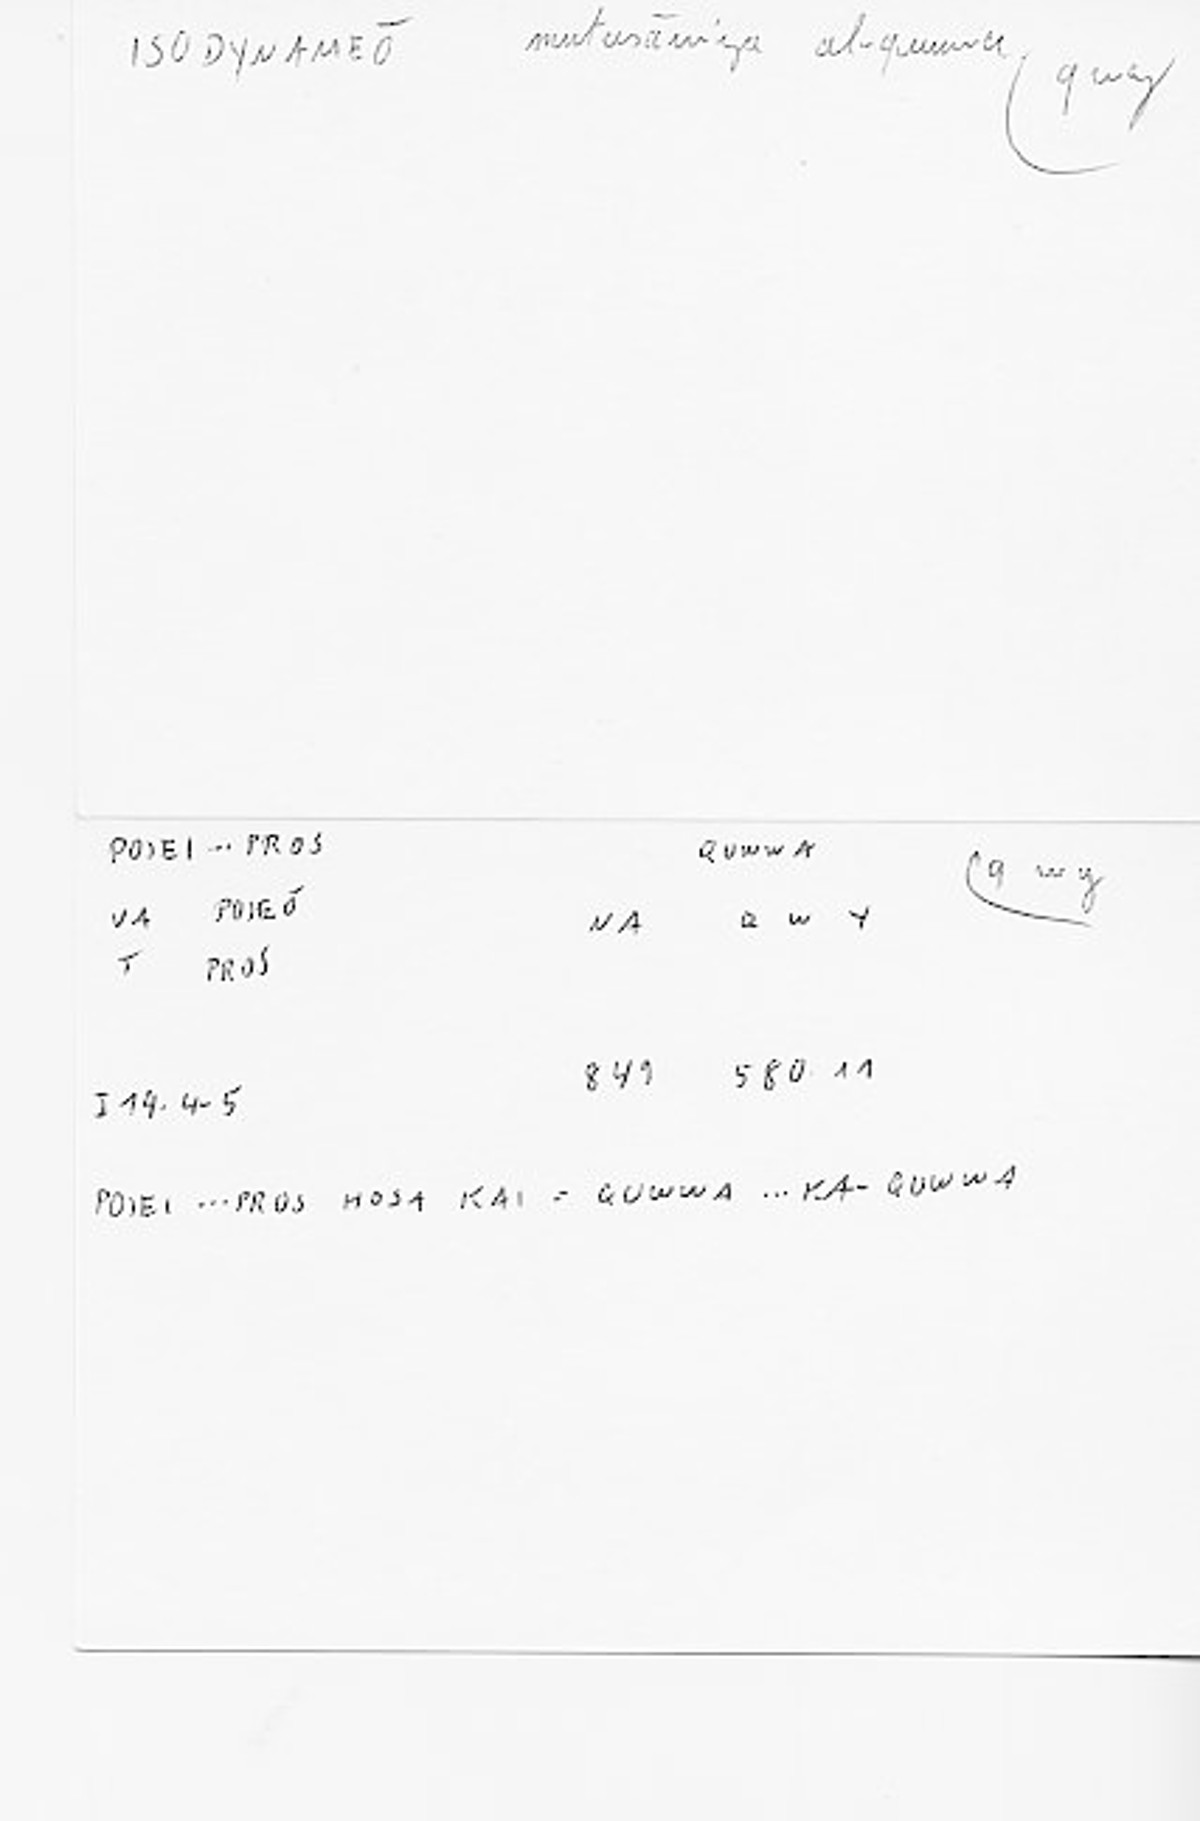 ISODYNAMEŌ mutusāwiya al-quwwa (qwy
POIEI ... PROS QUWWA (q w y
VA POIEŌ NA Q W Y
T PROS
849 580.11
I 19.4-5
POIEI ... PROS HOSA KAI = QUWWA ... KA-QUWWA